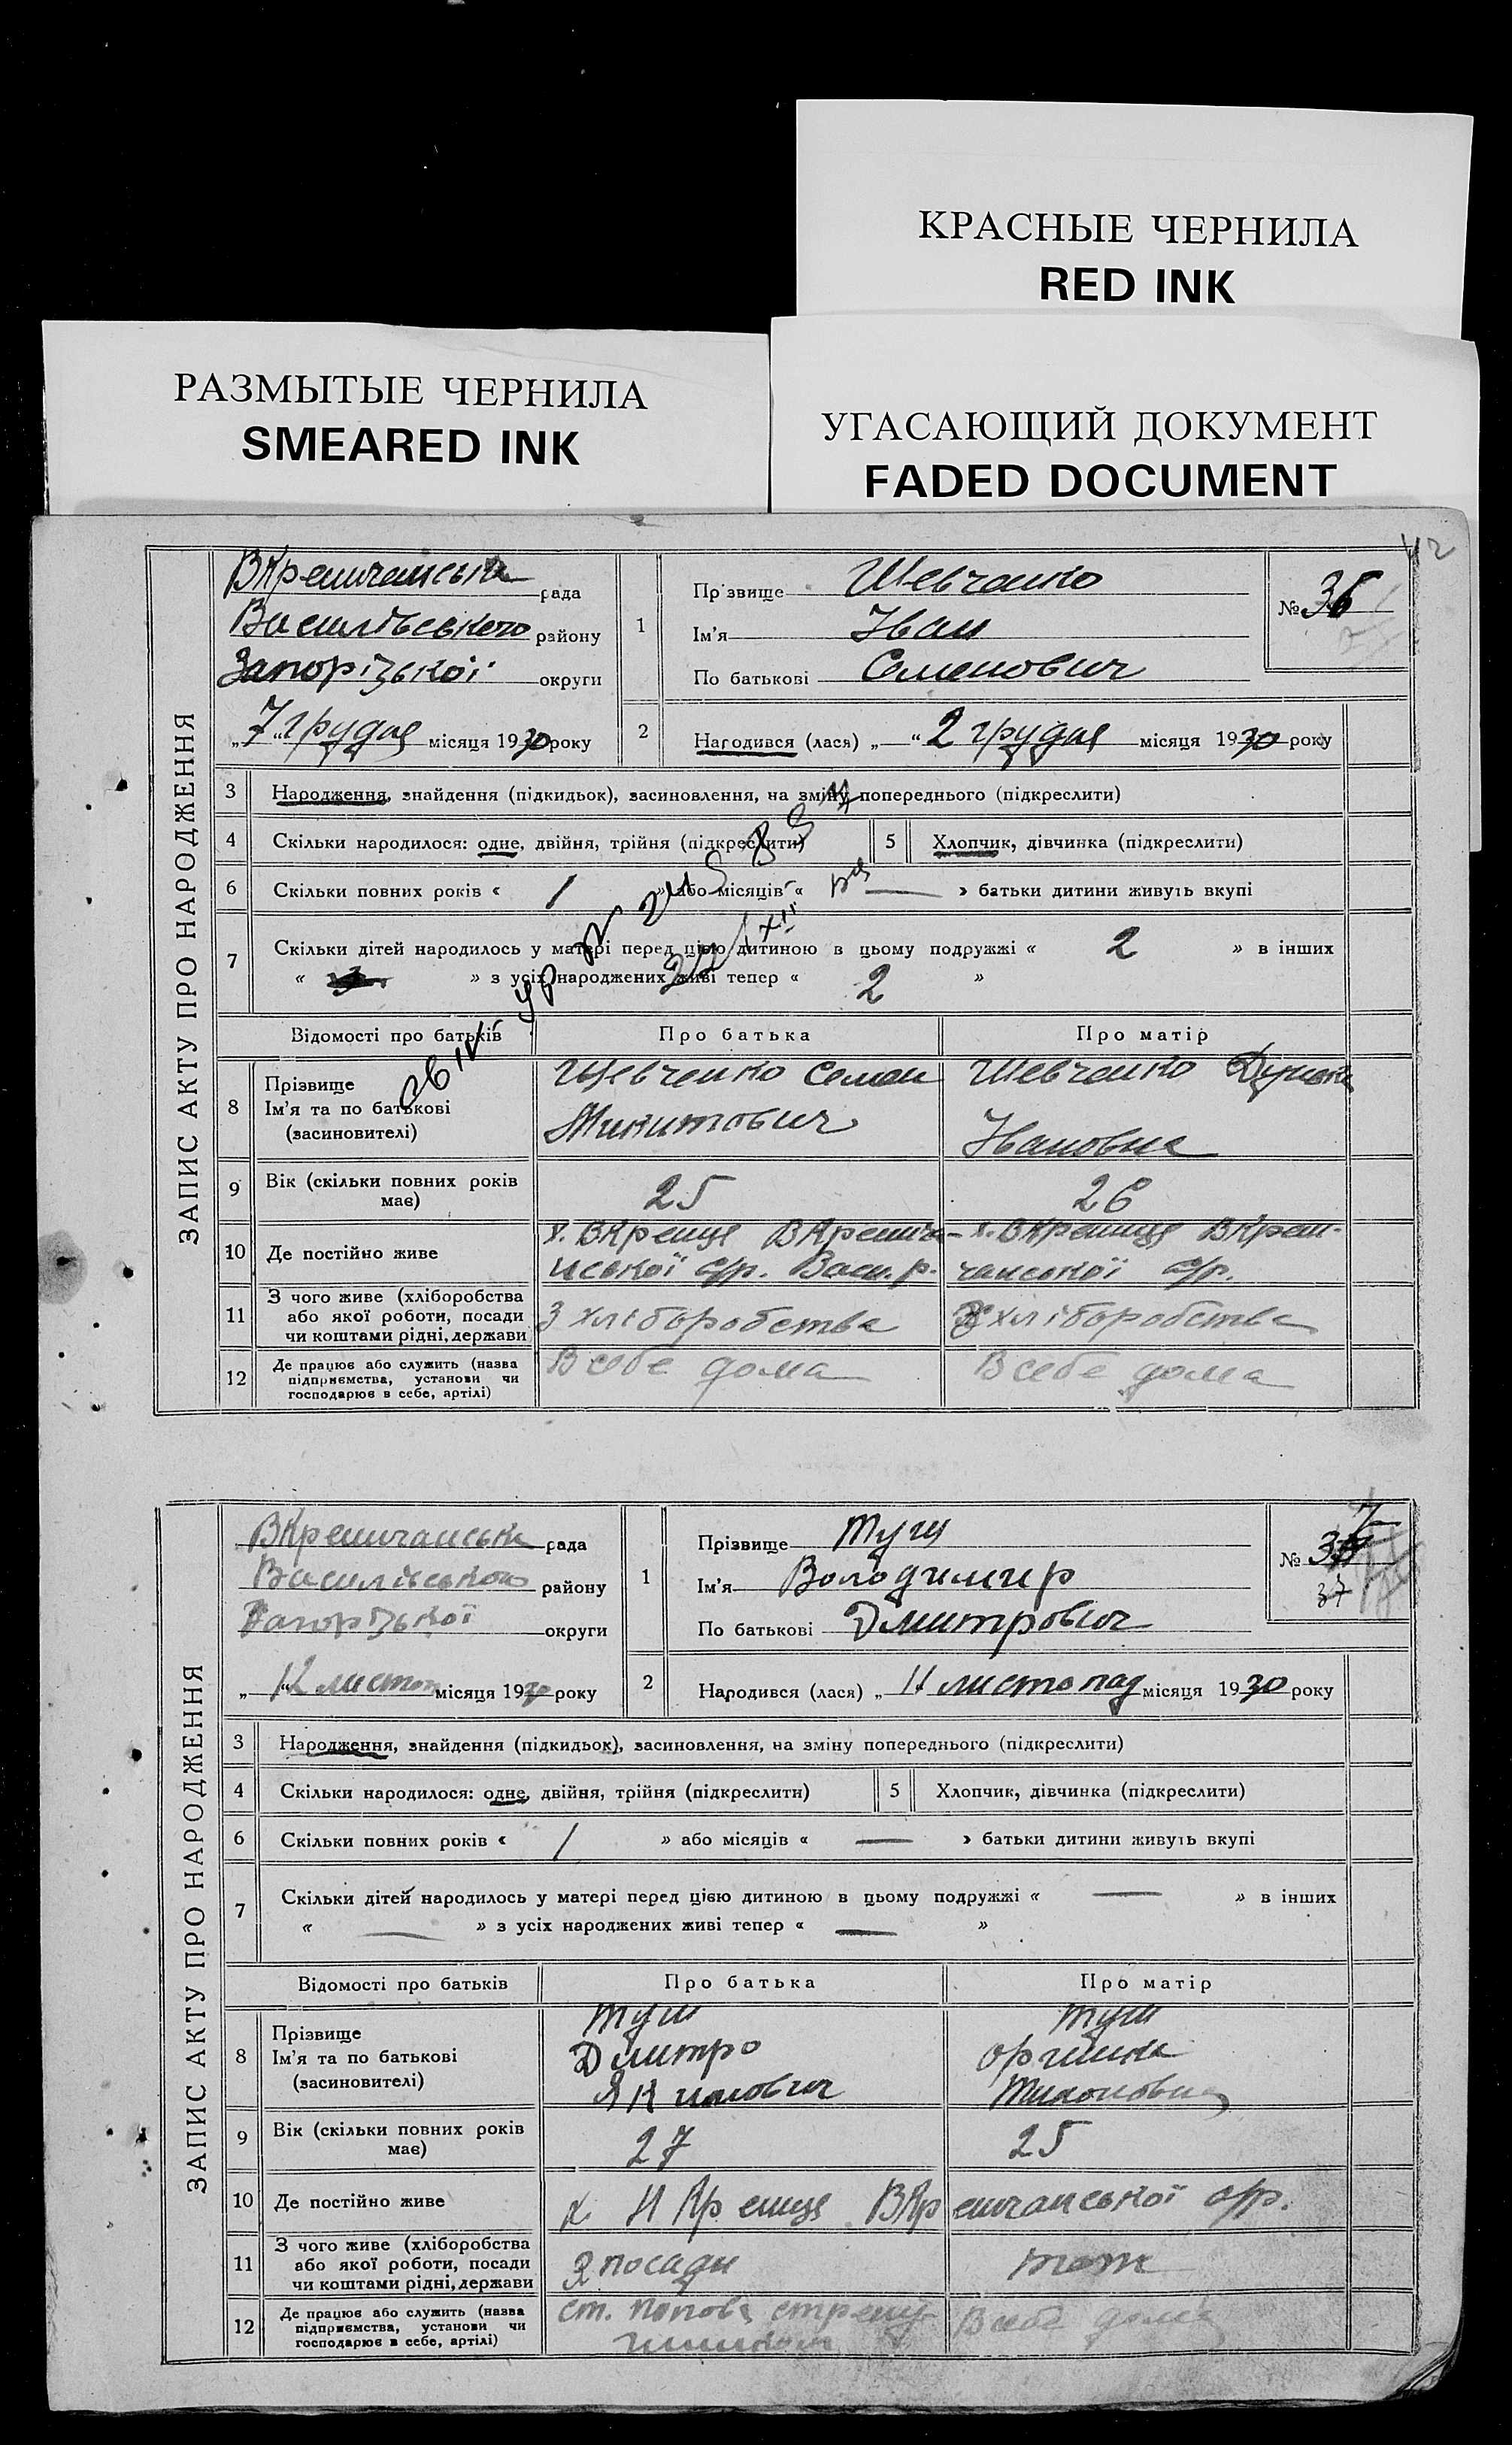 КРАСНЫЕ ЧЕРНИЛА
RED INK
РАЗМЫТЫЕ ЧЕРНИЛА
SMEARED INK
УГАСАЮЩИЙ ДОКУМЕНТ
FADED DOCUMENT
42
ЗАПИС АКТУ ПРО НАРОДЖЕННЯ
ВКреничанська рада
Василівського району
Запорізької округи
„7“ грудня місяця 1930 року
1
Прізвище Шевченко
Ім'я Іван
По батькові Семенович
№ 36
2 Народився (лася) „ “ 2 грудня місяця 1930 року
3 Народження, знайдення (підкидьок), засиновлення, на зміну попереднього (підкреслити)
4 Скільки народилося: одне, двійня, трійня (підкреслити) 5 Хлопчик, дівчинка (підкреслити)
6 Скільки повних років « 1 » або місяців « — » батьки дитини живуть вкупі
7 Скільки дітей народилось у матері перед цією дитиною в цьому подружжі « 2 » в інших
« » з усіх народжених живі тепер « 2 »
Відомості про батьків Про батька Про матір
8 Прізвище
Ім'я та по батькові
(засновителі)
Шевченко Семен
Микитович
Шевченко
Івановна
9 Вік (скільки повних років
має) 25 26
10 Де постійно живе
х. ВКрениця ВКренича-
нської с/р. Васи. р.
х. ВКрениця ВКрени-
чанської с/р.
11 З чого живе (хліборобства
або якої роботи, посади
чи коштами рідні, держави
З хліборобства З хліборобства
12 Де працює або служить (назва
підприємства, установи чи
господарює в себе, артілі)
В себе дома В себе дома
ЗАПИС АКТУ ПРО НАРОДЖЕННЯ
ВКреничанська рада
Василівського району
Запорізької округи
„12“ листоп місяця 1930 року
1
Прізвище Туш
Ім'я Володимир
По батькові Дмитрович
№ 37
37
2 Народився (лася) „ 11 листопад місяця 1930 року
3 Народження, знайдення (підкидьок), засиновлення, на зміну попереднього (підкреслити)
4 Скільки народилося: одне, двійня, трійня (підкреслити) 5 Хлопчик, дівчинка (підкреслити)
6 Скільки повних років « 1 » або місяців « — » батьки дитини живуть вкупі
7 Скільки дітей народилось у матері перед цією дитиною в цьому подружжі « — » в інших
« — » з усіх народжених живі тепер « — »
Відомості про батьків Про батька Про матір
8 Прізвище
Ім'я та по батькові
(засновителі)
Туш
Дмитро
Якимович
Туш
Оришка
9 Вік (скільки повних років
має) 27 25
10 Де постійно живе х. НКрениця ВКреничанської с/р.
11 З чого живе (хліборобства
або якої роботи, посади
чи коштами рідні, держави
З посади тож
12 Де працює або служить (назва
підприємства, установи чи
господарює в себе, артілі)
ст. Попова
В себе дома